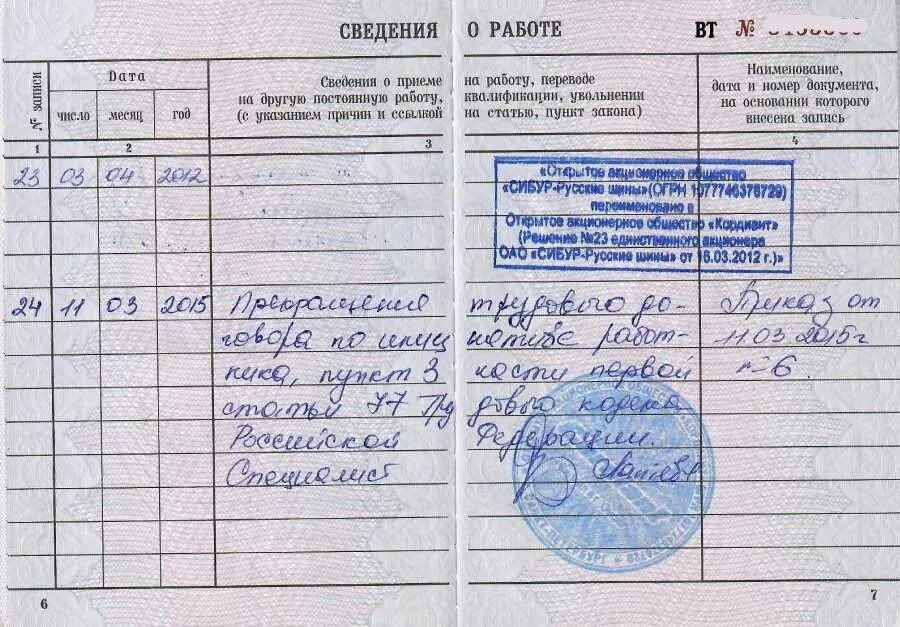 СВЕДЕНИЯ О РАБОТЕ ВТ №
№ записи
Дата
число месяц год
Сведения о приеме на работу, переводе
на другую постоянную работу, квалификации, увольнении
(с указанием причин и ссылкой на статью, пункт закона)
Наименование,
дата и номер документа,
на основании которого
внесена запись
1 2 3 4
23 03 04 2012
«Открытое акционерное общество
«СИБУР-Русские шины»(ОГРН 1077746376729)
переименовано в
Открытое акционерное общество «Кордиант»
(Решение №23 единственного акционера
ОАО «СИБУР-Русские шины» от 16.03.2012 г.)»
24 11 03 2015 Прекращение трудового до- Приказ от
говора по иници ативе работ- 11.03.2015г
ника, пункт 3 части первой №6
статьи 77 Тру дового кодекса
Российской Федерации.
Специалист
6 7